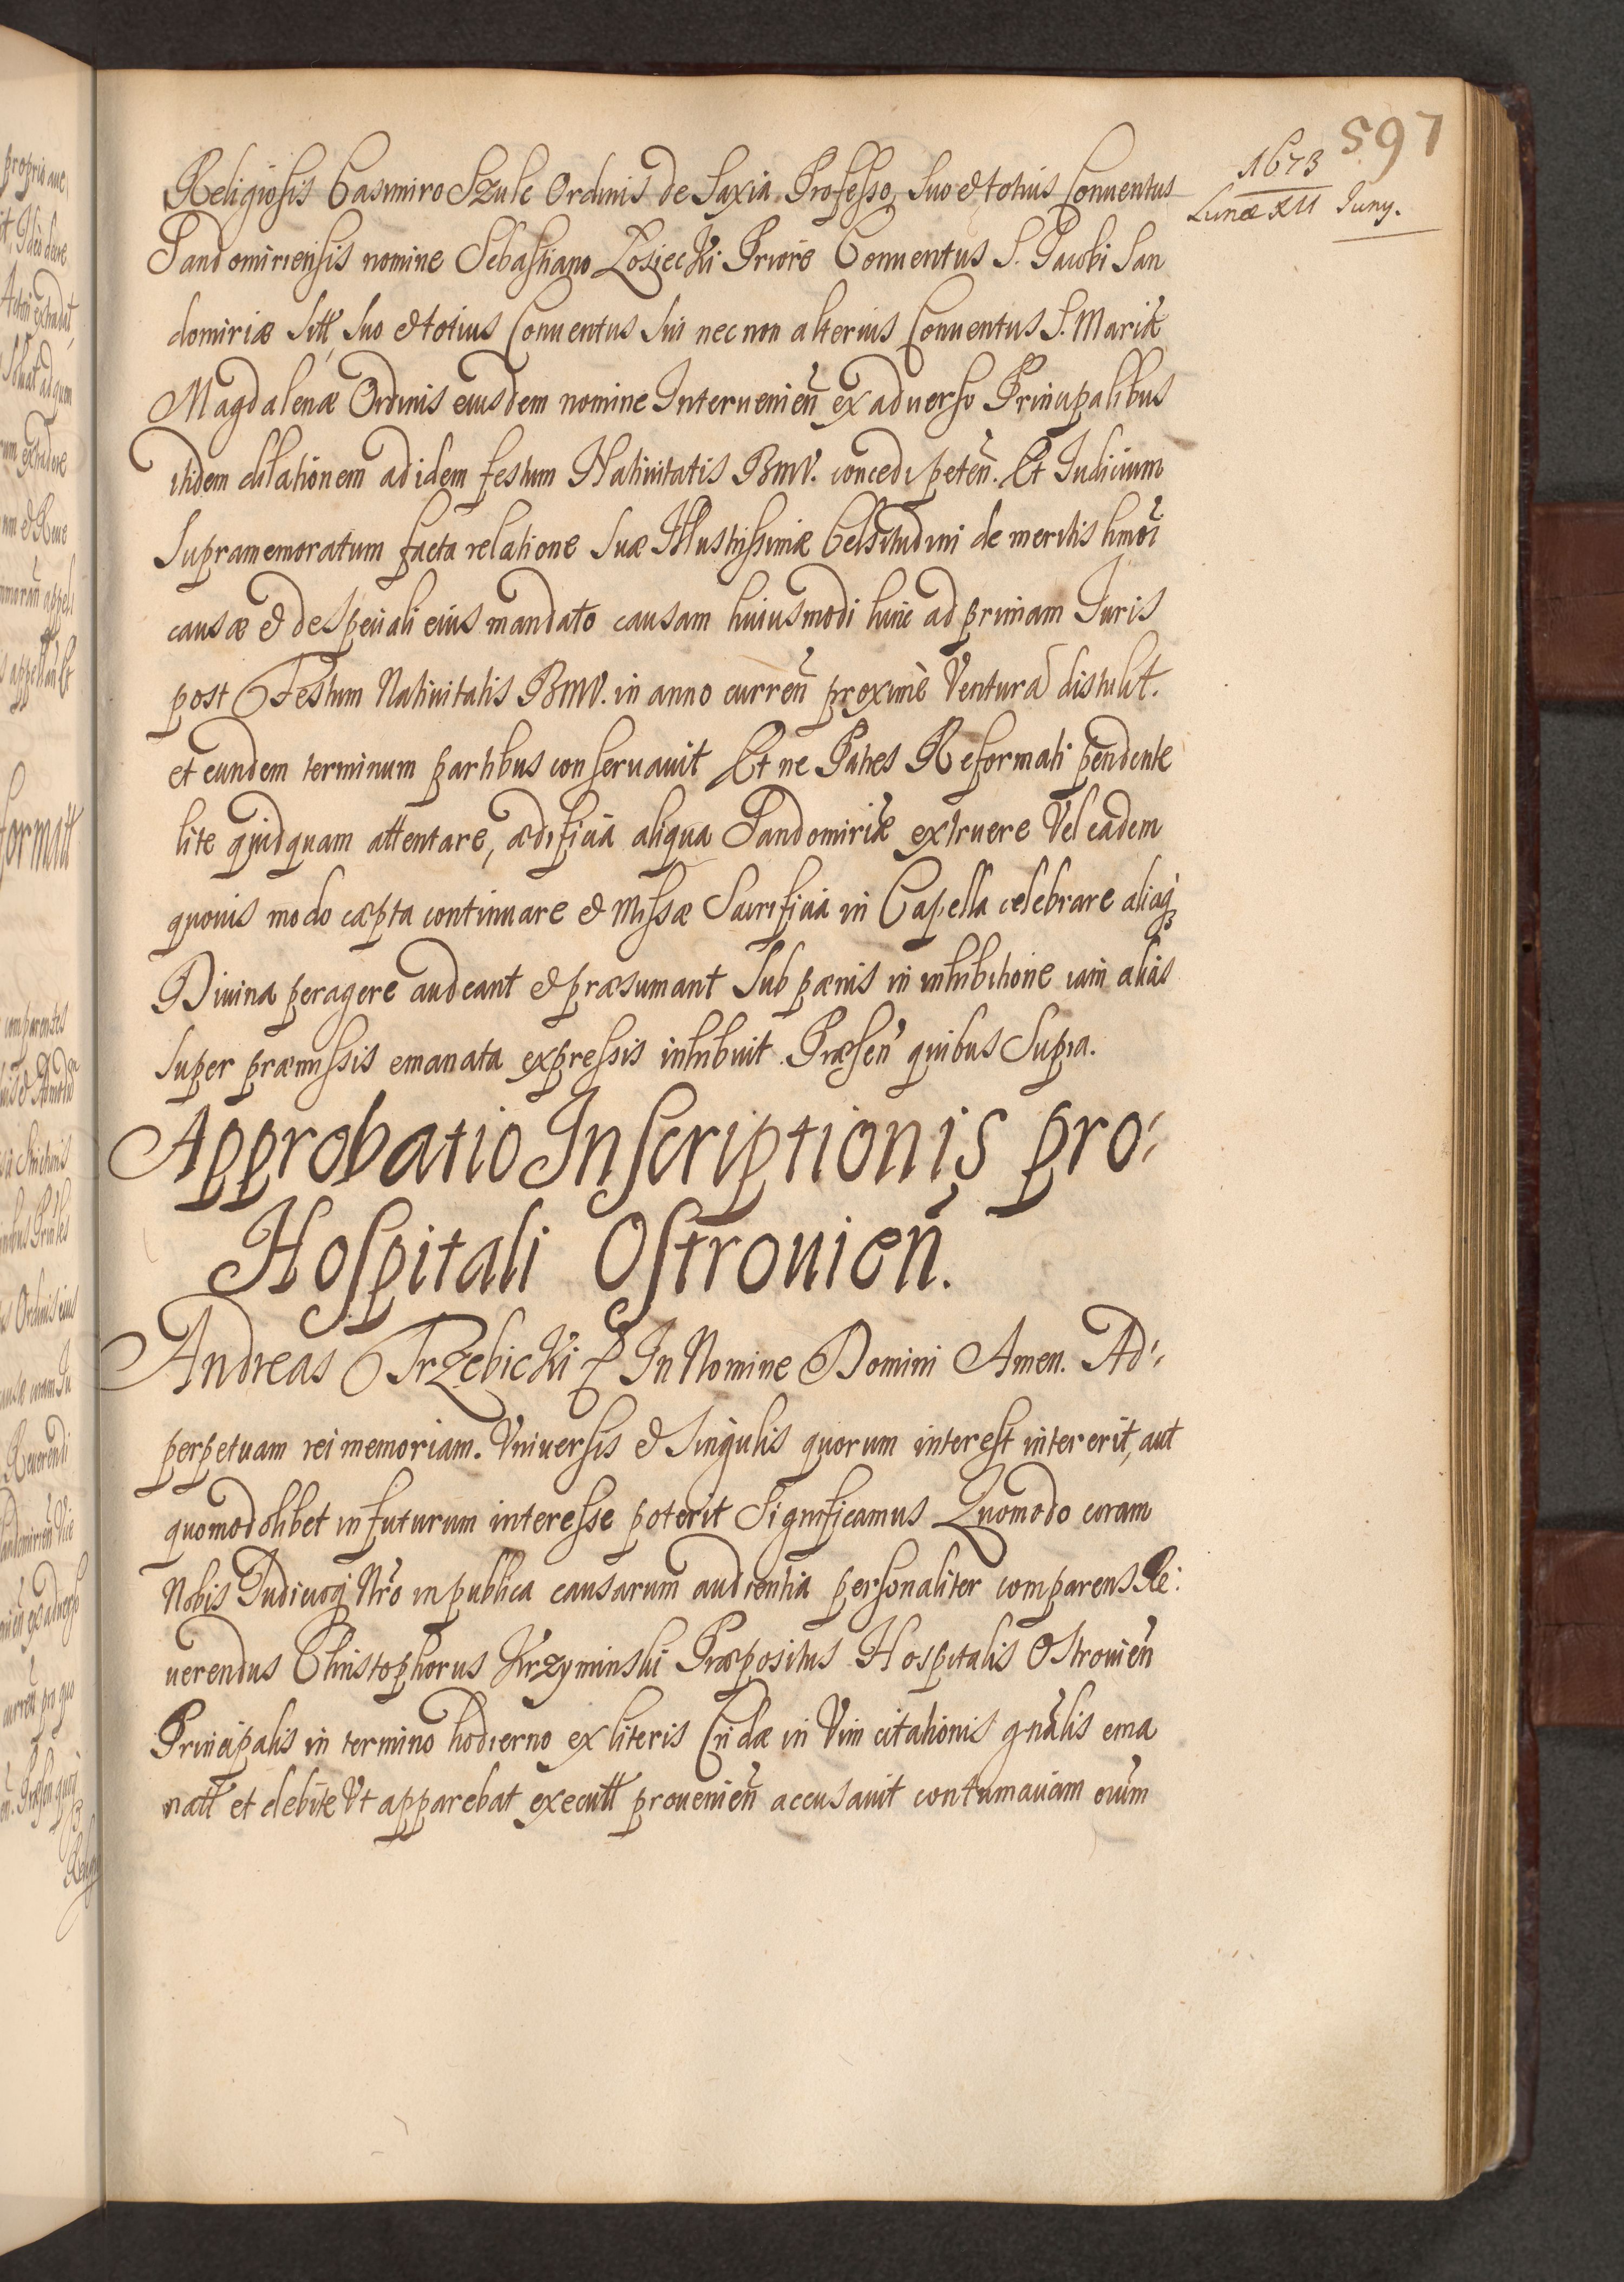 597
1673
Lunæ XII Juny.
Religiosis Casimiro Szulc Ordinis de Saxia Professo, suo et totius Conuentus
Sandomiriensis nomine Sebastiano Łosiecki Priore Conuentus S. Jacobi San
domiriæ sitt, suo et totius Conuentus sui nec non alterius Conuentus S. Mariæ
Magdalenæ Ordinis eiusdem nomine Interuenień ex aduerso Principalibus
itidem dilationem ad idem festum Natiuitatis BMV. concedi peteń. Et Iudicium
supramemoratum facta relatione suæ Illustrissimæ Celsitudini de meritis hmoi
causæ et de speciali eius mandato causam huiusmodi hinc ad primam Iuris
post Festum Natiuitatis BMV. in anno curreń proximè Venturã distulit.
et eundem terminum partibus conseruauit Et ne Patres Reformati pendente
lite quidquam attentare, ædificia aliqua Sandomiriæ extruere Vel eadem
quouis modo cæpta continuare et Missæ Sacrificia in Capella celebrare aliaq3
Diuina peragere audeant et præsumant sub pænis in inhibitione iam alias
super præmissis emanata expressis inhibuit. Præseń quibus supra.
Approbatio Inscriptionis pro:
Hospitali Ostrouień.
Andreas Trzebicki In Nomine Domini Amen. Ad:
perpetuam rei memoriam. Vniuersis et singulis quorum interest intererit, aut
quomodolibet in futurum interesse poterit significamus Quomodo coram
Nobis Iudicioq Nro in publica causarum audientia personaliter comparens Re:
uerendus Christophorus Krzyminski Præpositus Hospitalis Ostrouień
Principalis in termino hodierno ex literis Cridæ in Vim citationis gnalis ema
natt et debite Vt apparebat executt prouenień accusauit contumaciam oium